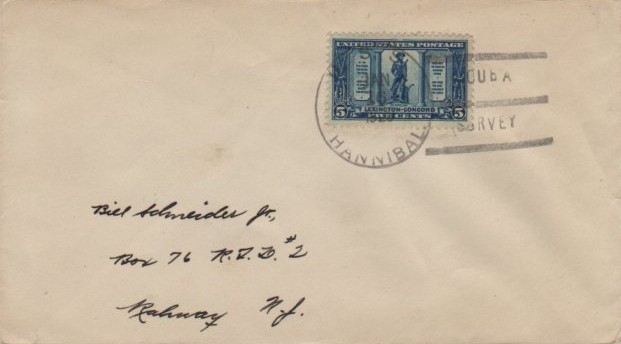 UNITED STATES POSTAGE
5 LEXINGTON-CONCORD 5
FIVE CENTS
HANNIBAL
CUBA
SURVEY
Bill Schneider Jr.,
Box 76 R.F.D. #2
Rahway N.J.